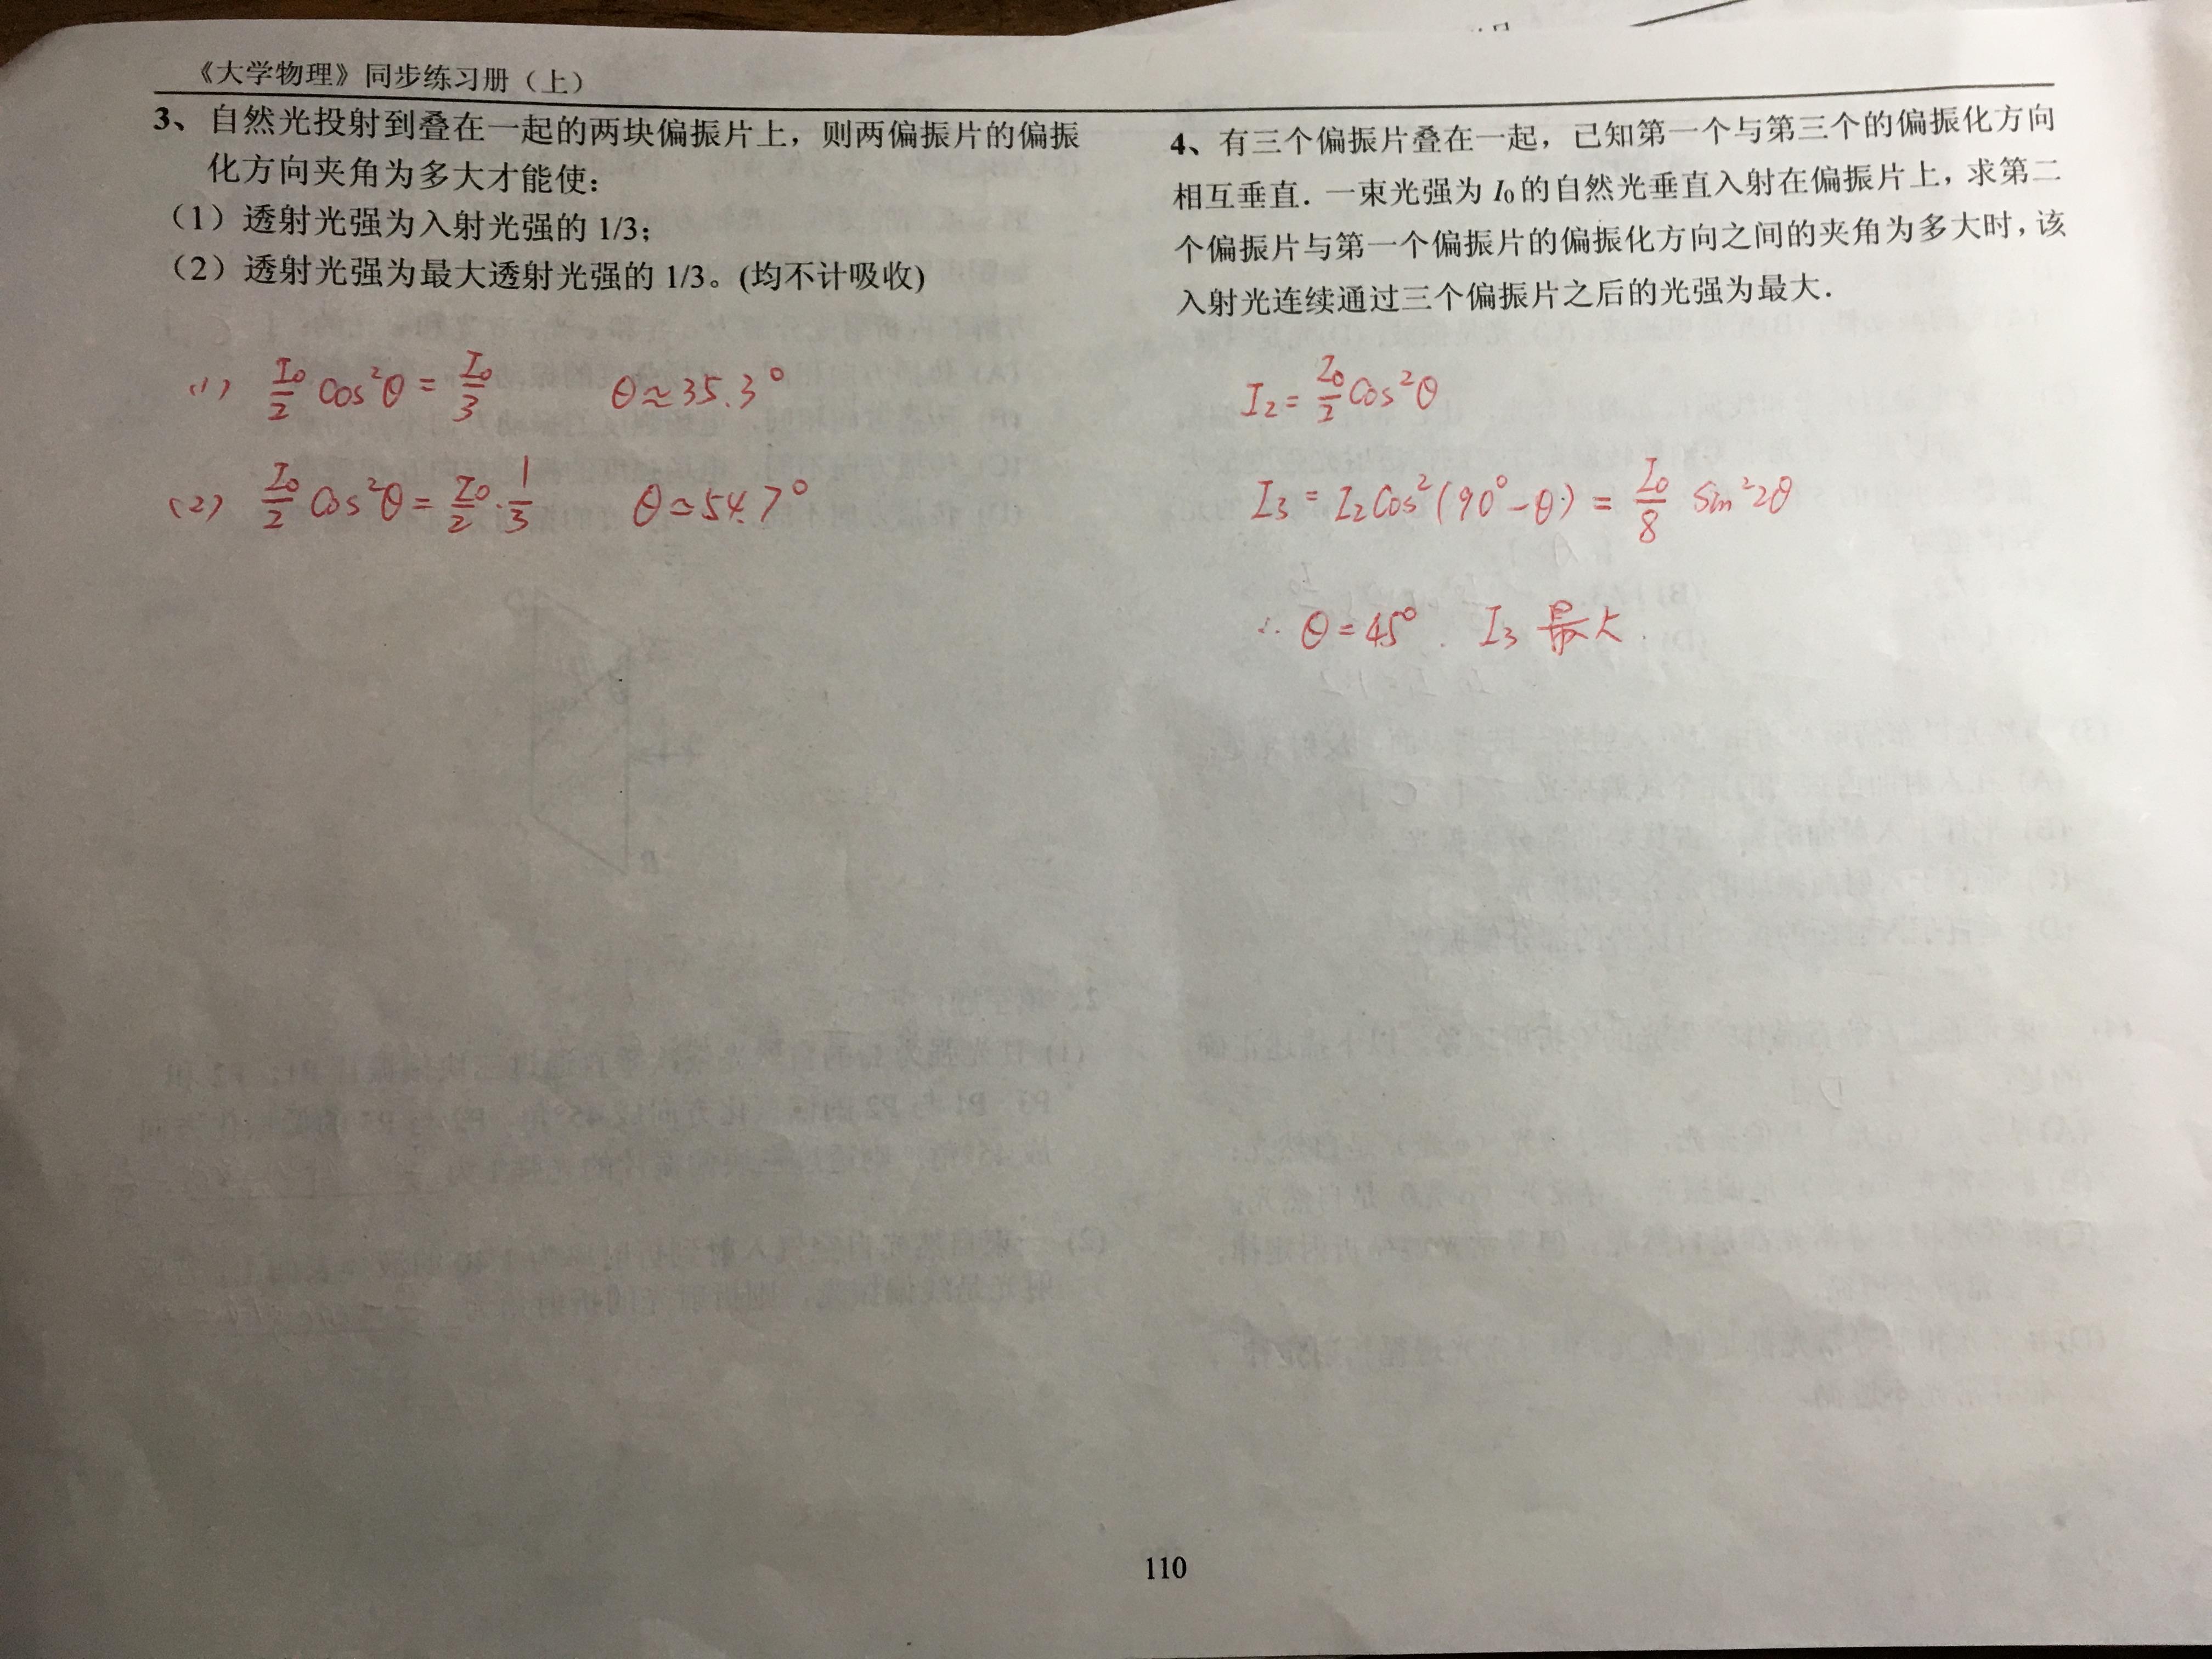 《大学物理》同步练习册（上）
3、自然光投射到叠在一起的两块偏振片上，则两偏振片的偏振
化方向夹角为多大才能使：
（1）透射光强为入射光强的 1/3；
（2）透射光强为最大透射光强的 1/3。(均不计吸收)
(1) I₀/2 cos²θ = I₀/3 θ≈35.3°
(2) I₀/2 cos²θ = I₀/2 · 1/3 θ≃54.7°
4、有三个偏振片叠在一起，已知第一个与第三个的偏振化方向
相互垂直．一束光强为 I₀ 的自然光垂直入射在偏振片上，求第二
个偏振片与第一个偏振片的偏振化方向之间的夹角为多大时，该
入射光连续通过三个偏振片之后的光强为最大．
I₂ = I₀/2 cos²θ
I₃ = I₂cos²(90°-θ) = I₀/8 sin²2θ
∴ θ = 45°. I₃ 最大.
110